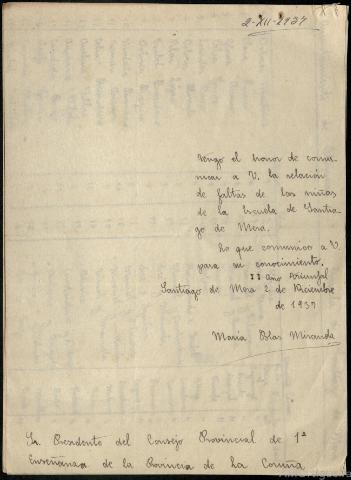 2-XII-1937
Tengo el honor de comu-
nicar a V. la relación
de faltas de las niñas
de la Escuela de Santia-
go de Mera.
Lo que comunico a V.
para su conocimiento.
II Año Triunfal
Santiago de Mera 2 de Diciembre
de 1937
María Blas Miranda
Sr. Presidente del Consejo Provincial de 1ª
Enseñanza de la Provincia de La Coruña.